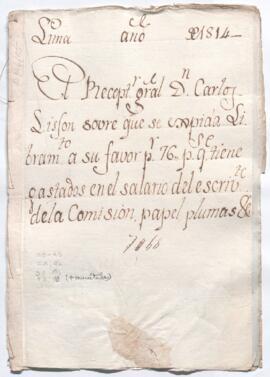 Lima año de 1814
El Recept.r gral D.n Carlos
Lisson sovre que se expida Li
bram.to a su favor p.r 76 p.s q.e tiene
gastados en el salario del escriv.te
de la Comision, papel plumas &